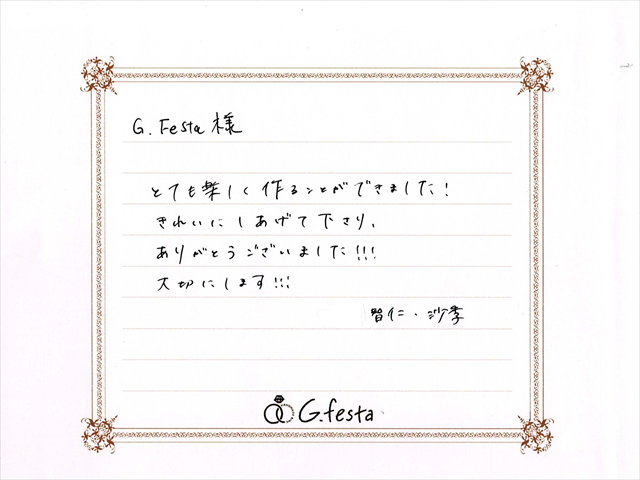 G. Festa 様
とても楽しく作ることができました!
きれいにしあげて下さり、
ありがとうございました!!!
大切にします!!!
智仁・沙季
G.festa